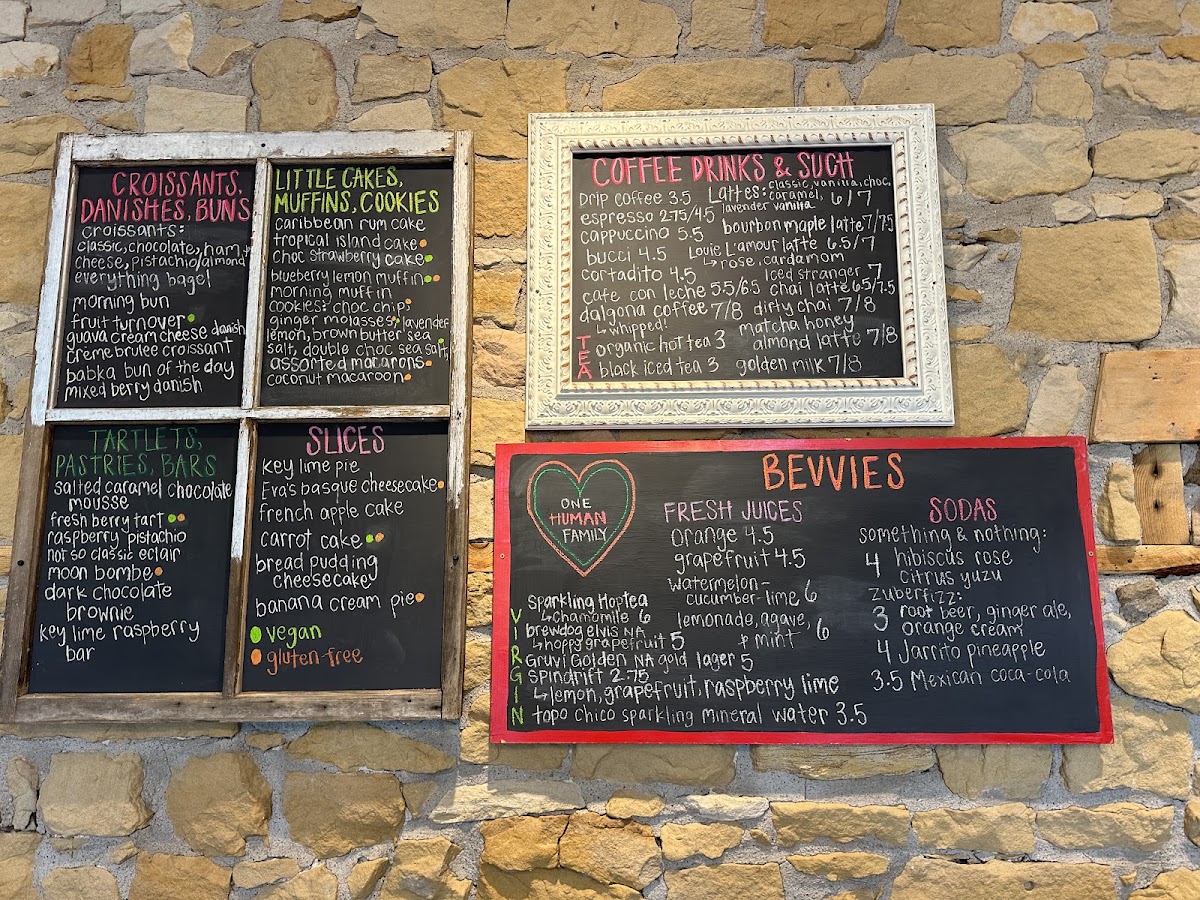 CROISSANTS,
DANISHES, BUNS
croissants:
classic, chocolate, ham +
cheese, pistachio/almond
everything bagel
morning bun
fruit turnover
guava cream cheese danish
creme brulee croissant
babka bun of the day
mixed berry danish
LITTLE CAKES,
MUFFINS, COOKIES
caribbean rum cake
tropical island cake
choc strawberry cake
blueberry lemon muffin
morning muffin
cookies: choc chip,
ginger molasses, lavender
lemon, brown butter sea
salt, double choc sea salt,
assorted macarons
coconut macaroon
TARTLETS,
PASTRIES, BARS
salted caramel chocolate
mousse
fresh berry tart
raspberry pistachio
not so classic eclair
moon bombe
dark chocolate
brownie
key lime raspberry
bar
SLICES
key lime pie
Eva's basque cheesecake
french apple cake
carrot cake
bread pudding
cheesecake
banana cream pie
vegan
gluten-free
COFFEE DRINKS & SUCH
Drip coffee 3.5
espresso 2.75/4.5
cappuccino 5.5
bucci 4.5
cortadito 4.5
cafe con leche 5.5/6.5
dalgona coffee 7/8
↳ whipped!
TEA
organic hot tea 3
black iced tea 3
Lattes: classic, vanilla, choc,
caramel, 6/7
lavender vanilla
bourbon maple latte 7/7.5
Louie L'amour latte 6.5/7
↳ rose, cardamom
Iced stranger 7
chai latte 6.5/7.5
dirty chai 7/8
matcha honey
almond latte 7/8
golden milk 7/8
BEVVIES
ONE
HUMAN
FAMILY
VIRGIN
sparkling Hoptea
↳ chamomile 6
brewdog elvis NA
↳ hoppy grapefruit 5
Gruvi Golden NA gold lager 5
spindrift 2.75
↳ lemon, grapefruit, raspberry lime
topo chico sparkling mineral water 3.5
FRESH JUICES
orange 4.5
grapefruit 4.5
watermelon-
cucumber-lime 6
lemonade, agave, 6
+ mint
SODAS
something & nothing:
4 hibiscus rose
citrus yuzu
zuberfizz:
3 root beer, ginger ale,
orange cream
4 Jarrito pineapple
3.5 Mexican coca-cola